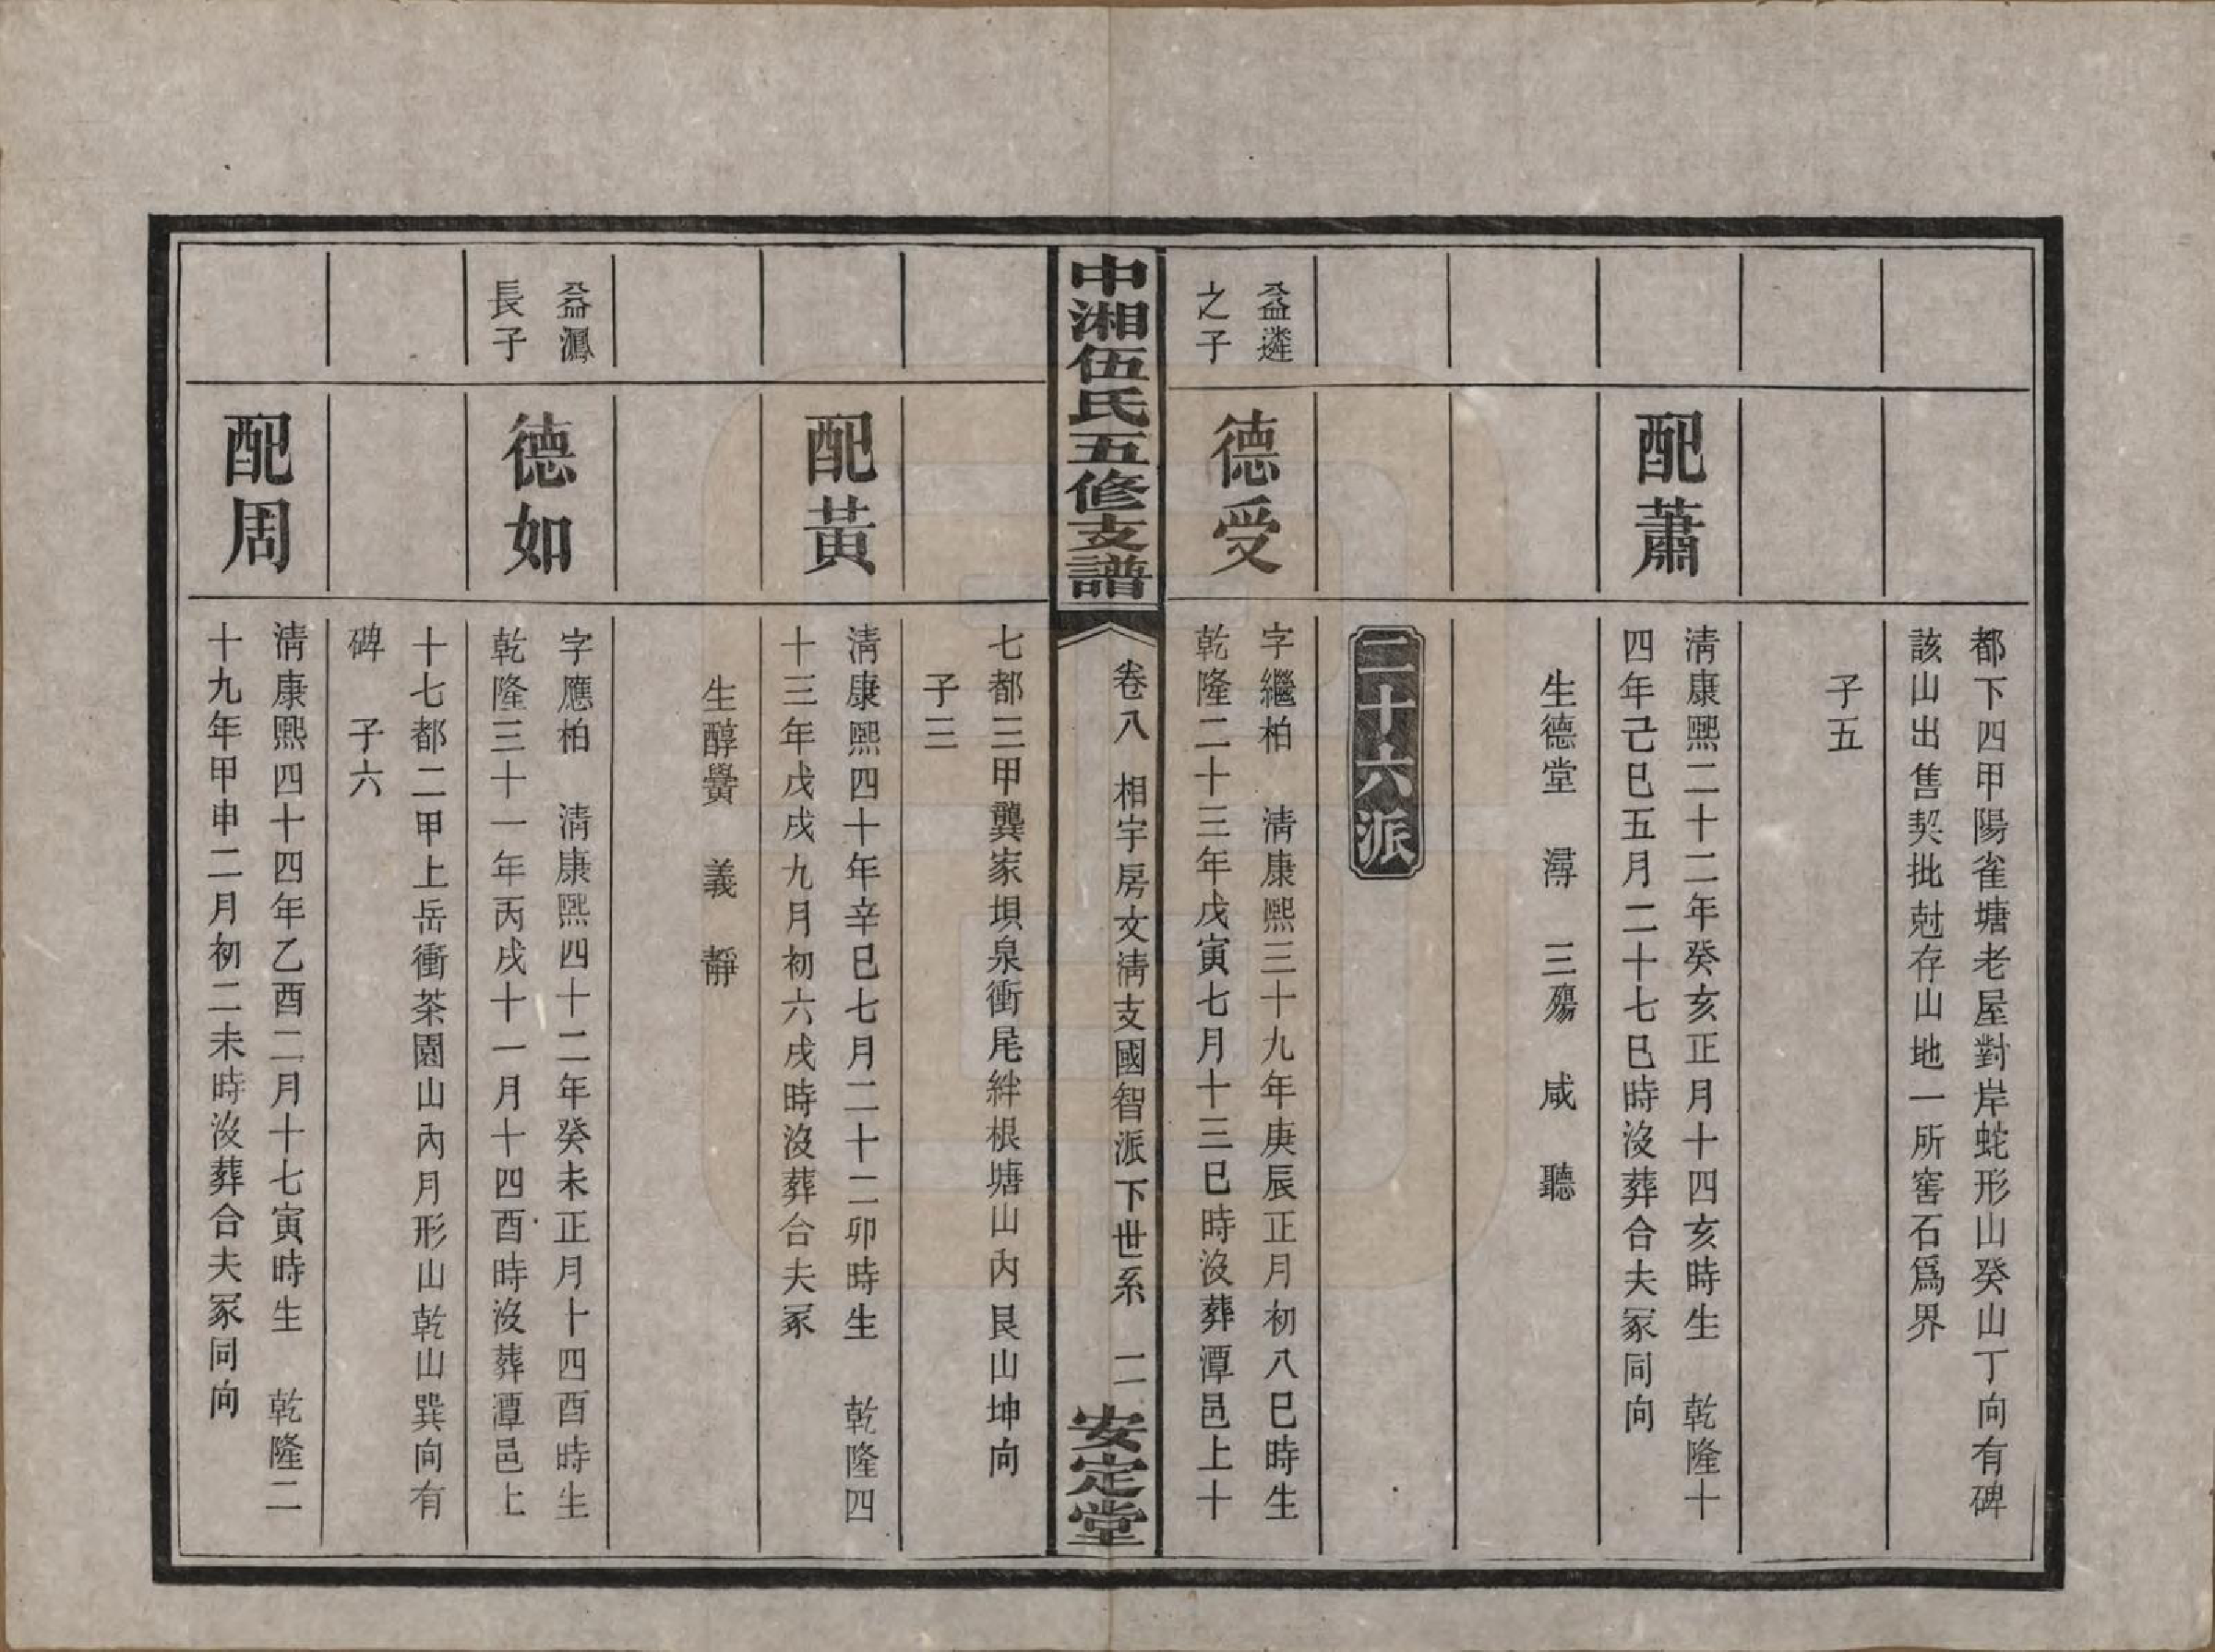 都下四甲陽雀塘老屋對岸蛇形山癸山丁向有碑
該山出售契批尅存山地一所窖石爲界
子五
配蕭
清康熙二十二年癸亥正月十四亥時生　乾隆十
四年己巳五月二十七巳時沒葬合夫冢同向
生德堂　潯　三殤　咸　聽
二十六派
益遴
之子
德受
字繼柏　清康熙三十九年庚辰正月初八巳時生
乾隆二十三年戊寅七月十三巳時沒葬潭邑上十
中湘伍氏五修支譜
卷八　相宇房文清支國智派下世系　二
安定堂
七都三甲龔家垻泉衝尾絆根塘山內艮山坤向
子三
配黃
清康熙四十年辛巳七月二十二卯時生　乾隆四
十三年戊戌九月初六戌時沒葬合夫冢
生醇黌　義　靜
益㵯
長子
德如
字應柏　清康熙四十二年癸未正月十四酉時生
乾隆三十一年丙戌十一月十四酉時沒葬潭邑上
十七都二甲上岳衝茶園山內月形山乾山巽向有
碑　子六
配周
清康熙四十四年乙酉二月十七寅時生　乾隆二
十九年甲申二月初二未時沒葬合夫冢同向